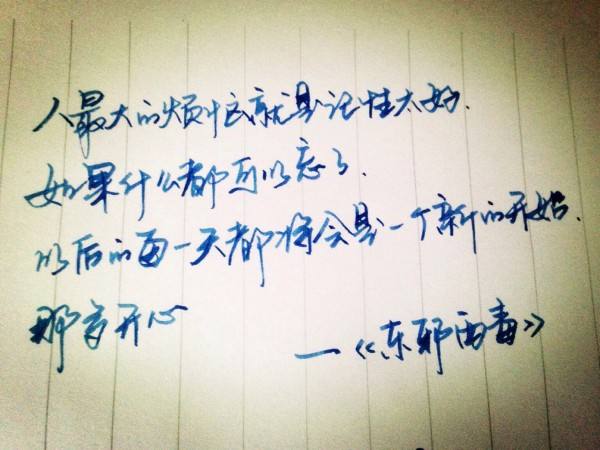 人最大的烦忙这就是记性太好.
如果什么都可以忘了.
以后的每一天都将会是一个新的开始.
那多开心
—《东邪西毒》